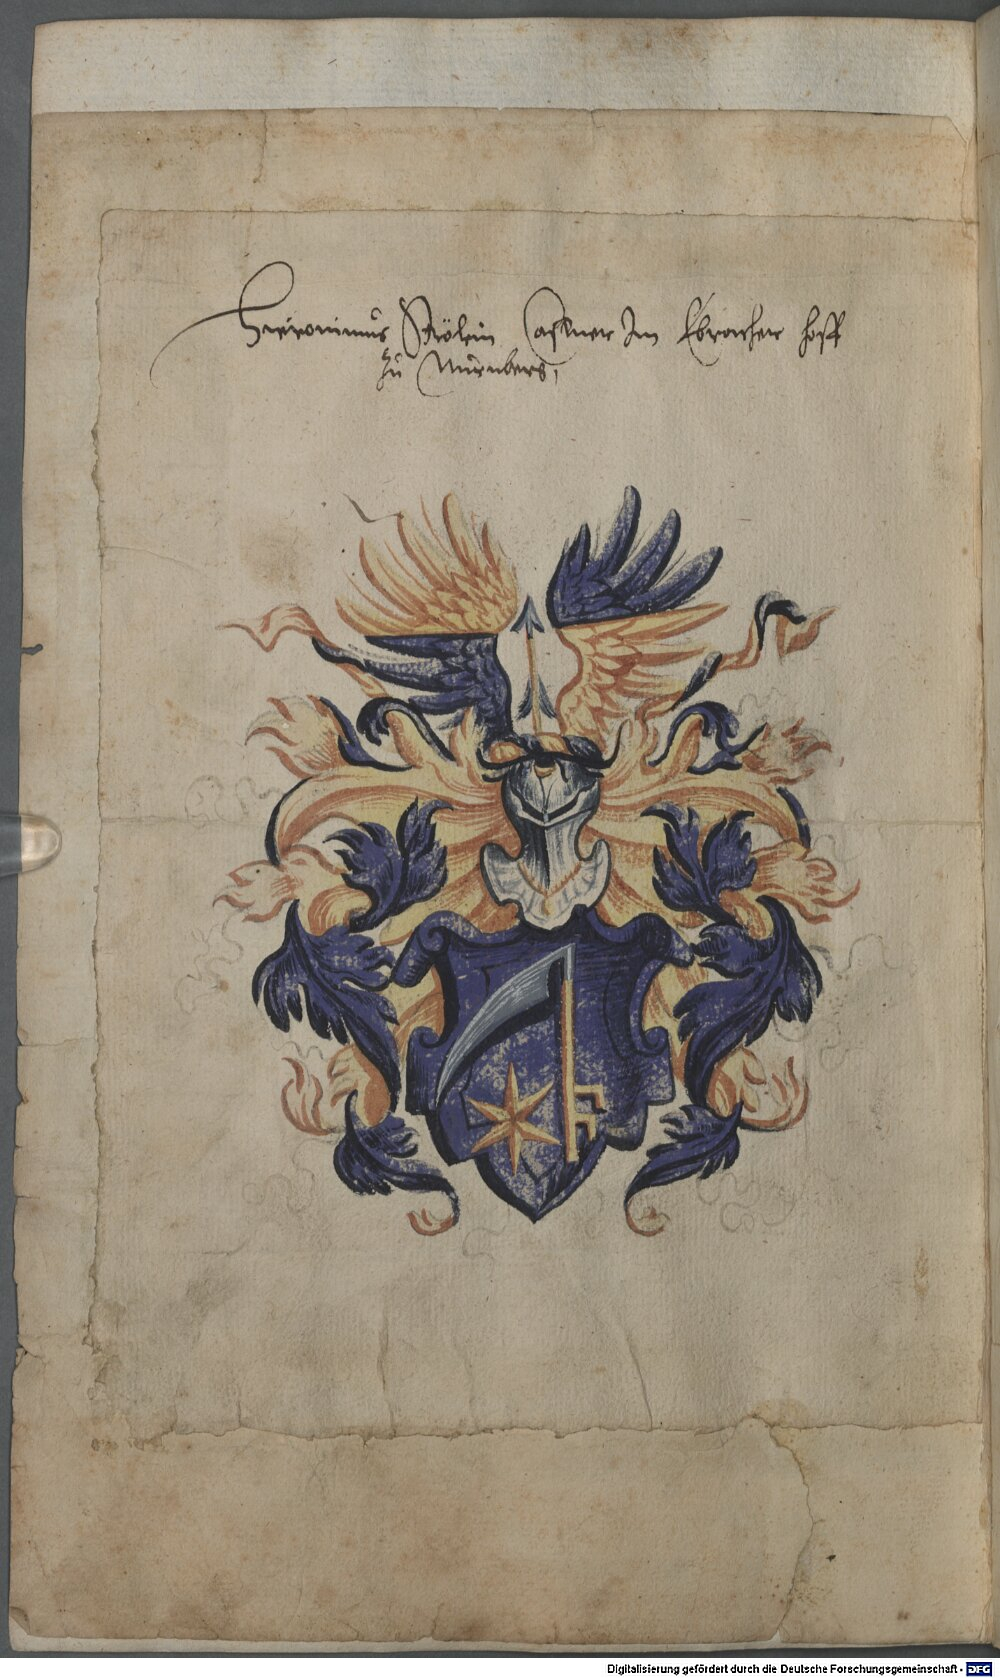 Hieronimus Stölein Castner Im Ebracher hoff
zu Nurnberg,
Digitalisierung gefördert durch die Deutsche Forschungsgemeinschaft - DFG